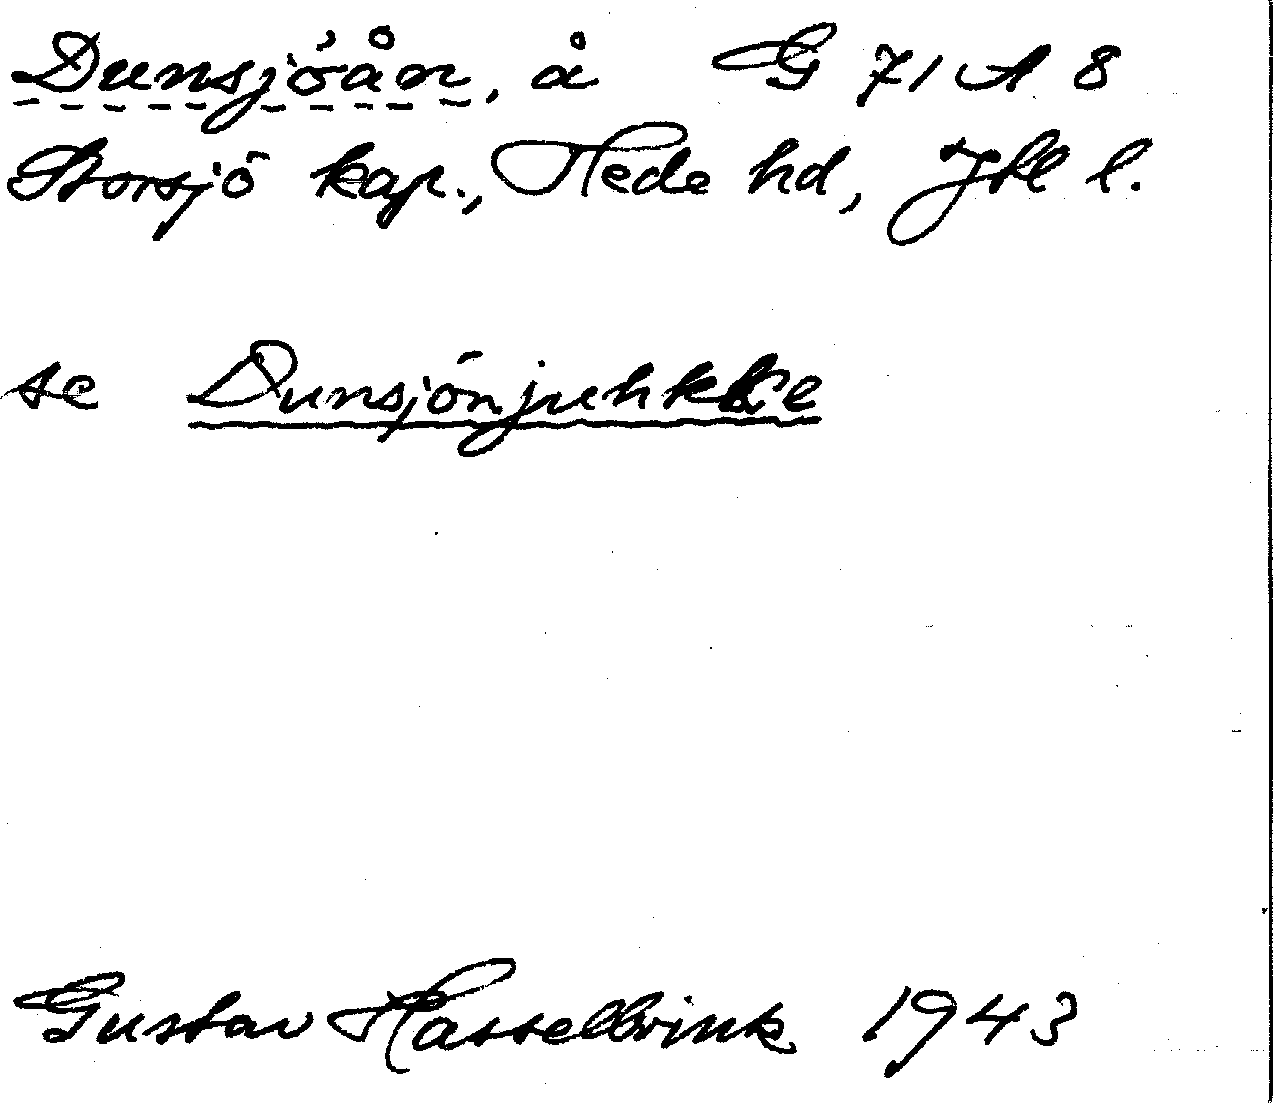 Dunsjöån, å G 71 A 8
Storsjö kap., Hede hd, Jtl l.
se Dunsjönjuhkke
Gustav Hasselbrink 1943